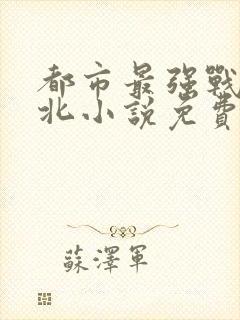 都市最强戰
北小說免費
蘇澤軍